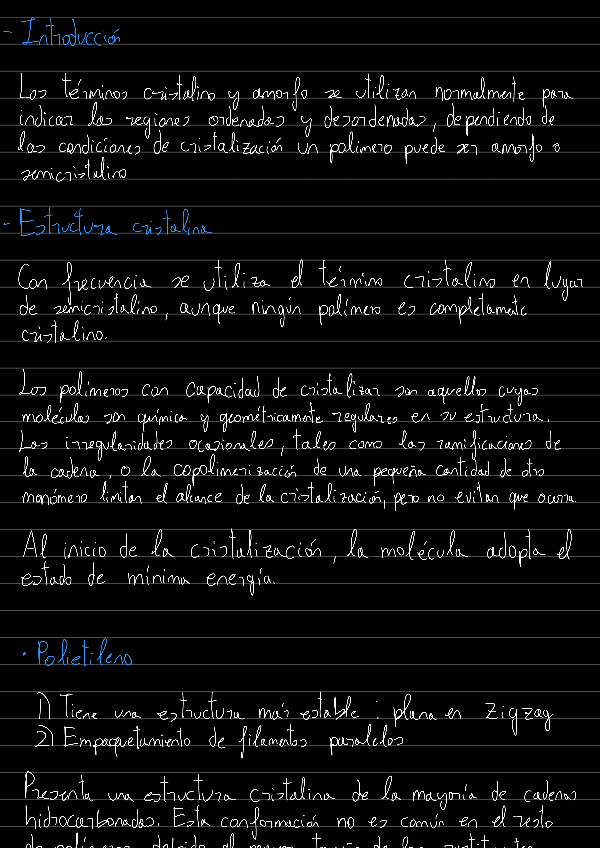 - Introducción
Los términos cristalino y amorfo se utilizan normalmente para
indicar las regiones ordenadas y desordenadas, dependiendo de
las condiciones de cristalización un polimero puede ser amorfo o
semicristalino
- Estructura cristalina
Con frecuencia se utiliza el término cristalino en lugar
de semicristalino, aunque ningún polímero es completamate
cristalino.
Los polímeros con capacidad de cristalizar son aquellos cuyas
moléculas son química y geométricamente regulares en su estructura.
Las irregularidades ocasionales, tales como las ramificaciones de
la cadena, o la copolimerización de una pequeña cantidad de otro
monómero limitan el alcance de la cristalización, pero no evitan que ocurra.
Al inicio de la cristalización, la molécula adopta el
estado de mínima energía.
· Polietileno
1) Tiene una estructura más estable : plana en zigzag
2) Empaquetamiento de filamentos paralelos
Presenta una estructura cristalina de la mayoría de cadenas
hidrocarbonadas. Esta conformación no es común en el resto